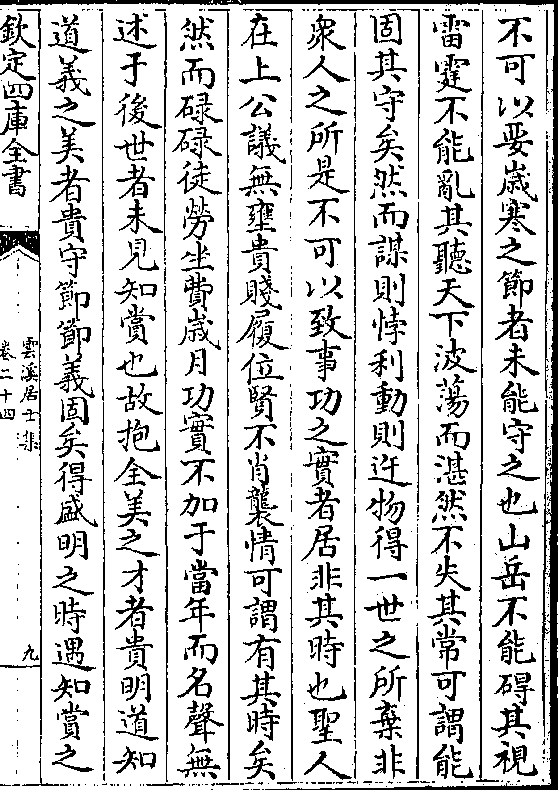 不可以要歲寒之節者未能守之也山岳不能碍其視
雷霆不能亂其聽天下波蕩而湛然不失其常可謂能
固其守矣然而謀則悖利動則迕物得一世之所棄非
衆人之所是不可以致事功之實者居非其時也聖人
在上公議無壅貴賤履位賢不肖襲情可謂有其時矣
然而碌碌徒勞坐費歲月功實不加于當年而名聲無
述于後世者未見知賞也故抱全美之才者貴明道知
道義之美者貴守節節義固矣得盛明之時遇知賞之
欽定四庫全書
雲溪居士集
卷二十四
九